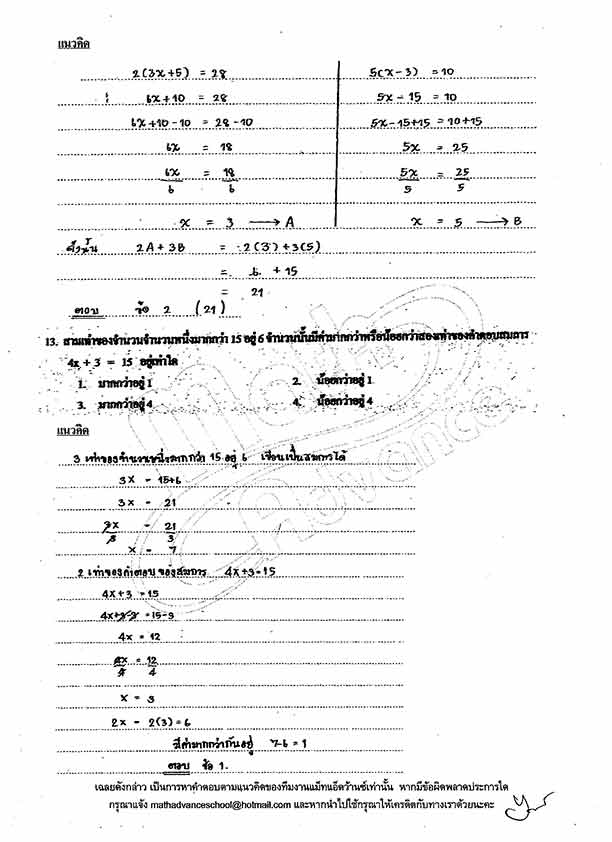 แนวคิด
2(3x+5) = 28
6x+10 = 28
6x+10-10 = 28-10
6x = 18
6x/6 = 18/6
x = 3 → A
5(x-3) = 10
5x - 15 = 10
5x-15+15 = 10+15
5x = 25
5x/5 = 25/5
x = 5 → B
ดังนั้น 2A+3B = 2(3)+3(5)
= 6 + 15
= 21
ตอบ ข้อ 2 (21)
13. สามเท่าของจำนวนจำนวนหนึ่งมากกว่า 15 อยู่ 6 จำนวนนั้นมีค่ามากกว่าหรือน้อยกว่าสองเท่าของคำตอบสมการ
4x + 3 = 15 อยู่เท่าใด
1. มากกว่าอยู่ 1 2. น้อยกว่าอยู่ 1
3. มากกว่าอยู่ 4 4. น้อยกว่าอยู่ 4
แนวคิด
3 เท่าของจำนวนหนึ่งมากกว่า 15 อยู่ 6 เขียนเป็นสมการได้
3x = 15+6
3x = 21
3x/3 = 21/3
x = 7
2 เท่าของคำตอบ ของสมการ 4x+3=15
4x+3 = 15
4x+3-3 = 15-3
4x = 12
4x/4 = 12/4
x = 3
2x = 2(3) = 6
มีค่ามากกว่ากันอยู่ 7-6 = 1
ตอบ ข้อ 1.
Math Advance
เฉลยดังกล่าว เป็นการหาคำตอบตามแนวคิดของทีมงานแม็ทแอ็ดว้านซ์เท่านั้น หากมีข้อผิดพลาดประการใด
กรุณาแจ้ง mathadvanceschool@hotmail.com และหากนำไปใช้กรุณาให้เครดิตกับทางเราด้วยนะคะ